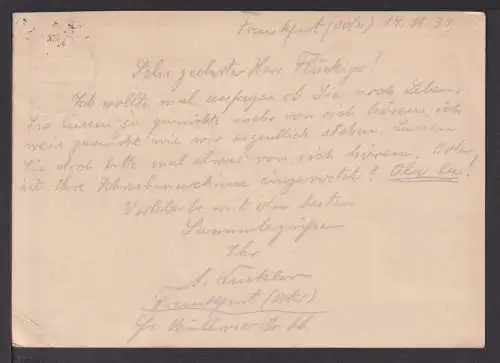 Frankfurt (Oder) 14. 33
Sehr geehrter Herr Flückiger!
Ich wollte mal anfragen ob Sie noch Leben,
Sie lassen ja garnichts mehr von sich hören, ich
weis garnicht wie wir eigentlich stehen. Lassen
Sie doch bitte mal etwas von sich hören. Oder
ist Ihre Schreibmaschine eingerostet?
Verbleibe mit den besten
Sammlergrüßen
Ihr
A. Winkler
Frankfurt (Oder)
66.